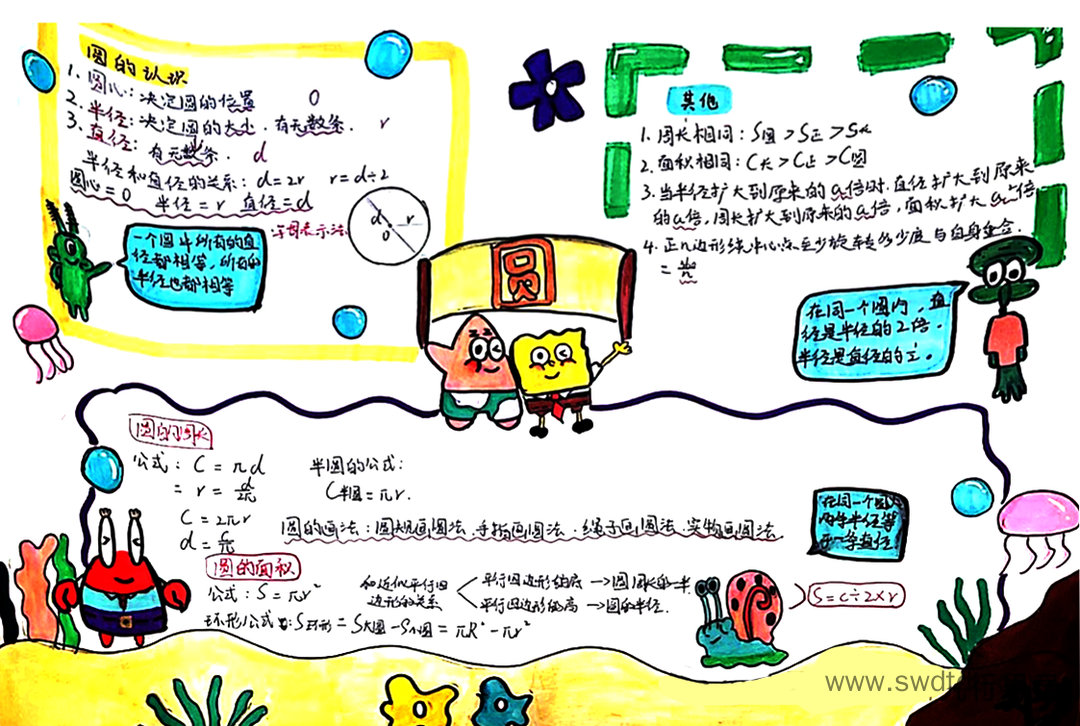 圆的认识
1. 圆心:决定圆的位置 O
2. 半径:决定圆的大小.有无数条. r
3. 直径:有无数条. d
半径和直径的关系: d=2r r=d÷2
圆心=O 半径=r 直径=d
字母表示法
d r
O
一个圆中所有的直
径都相等,所有的
半径也都相等
圆
其他
1. 周长相同: S圆>S正>S长
2. 面积相同: C长>C正>C圆
3. 当半径扩大到原来的a倍时,直径扩大到原来
的a倍,周长扩大到原来的a倍,面积扩大a²倍
4. 正n边形绕中心点至少旋转多少度与自身重合.
在同一个圆内,直
径是半径的2倍.
半径是直径的
圆的周长
公式: C=πd 半圆的公式:
C半圆=πr.
C=2πr
圆的画法:圆规画圆法.手指画圆法.绳子画圆法.实物画圆法
在同一个圆
内两条半径等
于一条直径!
圆的面积
公式: S=πr²
和近似平行四
边形的关系
平行四边形的底→圆周长的一半
平行四边形的高→圆的半径.
S=c÷2×r
S环形=S大圆-S小圆=πR²-πr²